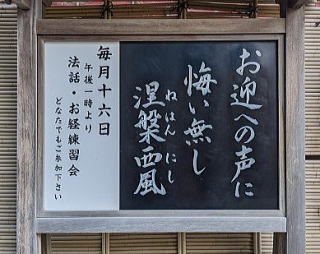 お迎への声に
悔い無し
涅槃西風
ねはん にし
毎月十六日
午後一時より
法話・お経練習会
どなたでもご参加下さい